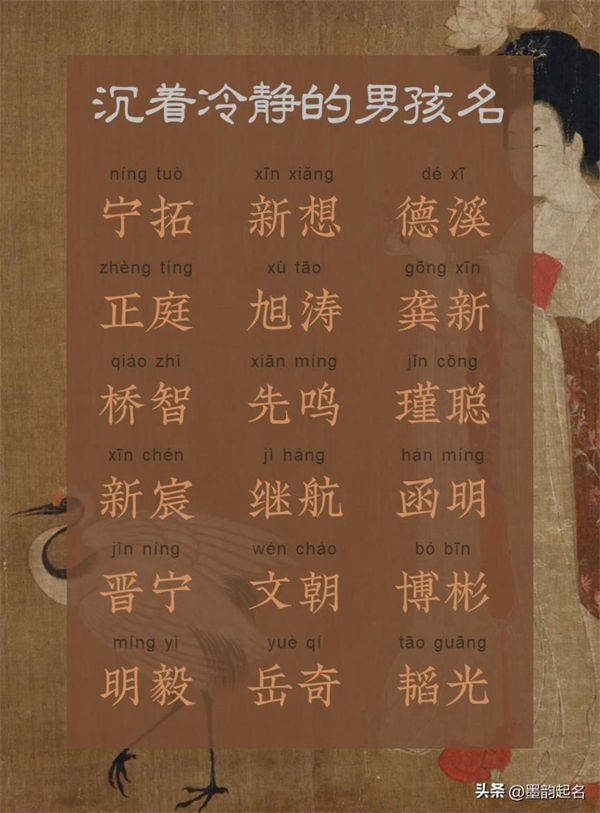 沉着冷静的男孩名
níng tuò xīn xiǎng dé xī
宁拓 新想 德溪
zhèng tíng xù tāo gōng xīn
正庭 旭涛 龚新
qiáo zhì xiān míng jǐn cōng
桥智 先鸣 瑾聪
xīn chén jì háng hán míng
新宸 继航 函明
jìn níng wén cháo bó bīn
晋宁 文朝 博彬
míng yì yuè qí tāo guāng
明毅 岳奇 韬光
头条 @墨韵起名